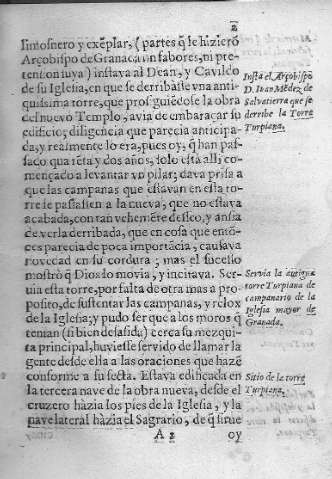 2
limosnero y exẽplar, (partes q̃ le hizierõ
Arçobispo de Granada sin fabores, ni pre-
tension suya) instava al Dean, y Cavildo
de su Iglesia, en que se derribasse vna anti-
quissima torre, que prosiguiẽdose la obra
del nuevo Templo, avia de embaraçar su
edificio; diligencia que parecia anticipa-
da, y realmente lo era, pues oy, q̃ han pas-
sado quarẽta y dos años, solo està alli co-
mençado a levantar vn pilar; dava prisa a
que las campanas que estavan en esta to-
rre se passassen a la nueva, que no estava
acabada, con tan vehemẽte desseo, y ansia
de verla derribada, que en cosa que enton-
ces parecia de poca importãcia, causava
novedad en su cordura; mas el sucesso
mostrò q̃ Dios lo movia, y incitava. Ser-
via esta torre, por falta de otra mas a pro-
posito, de sustentar las campanas, y relox
de la Iglesia; y pudo ser que a los moros q̃
tenian (si bien desasida) cerca su mezqui-
ta principal, huviesse servido de llamar la
gente desde ella a las oraciones que hazẽ
conforme a su secta. Estava edificada en
la tercera nave de la obra nueva, desde el
cruzero hàzia los pies de la Iglesia, y la
nave lateral hàzia el Sagrario, de q̃ sirue
A 2 oy
Insta el Arçobispo
D. Iuan Mẽdez de
Salvatierra que se
derribe la Torre
Turpiana.
Servia la antigua
torre Turpiana de
campanario de la
Iglesia mayor de
Granada.
Sitio de la torre
Turpiana.